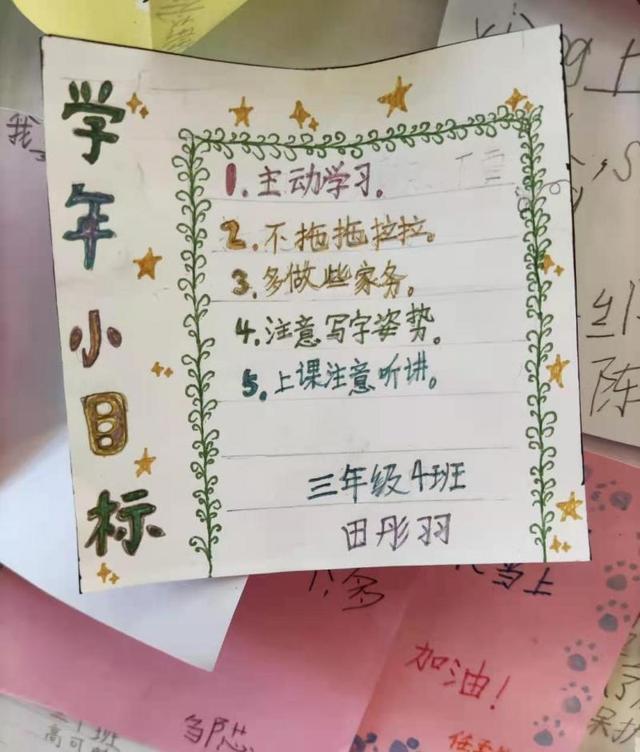 学年小目标
1. 主动学习。
2. 不拖拖拉拉。
3. 多做些家务。
4. 注意写字姿势。
5. 上课注意听讲。
三年级4班
田彤羽
我
陈
加油！